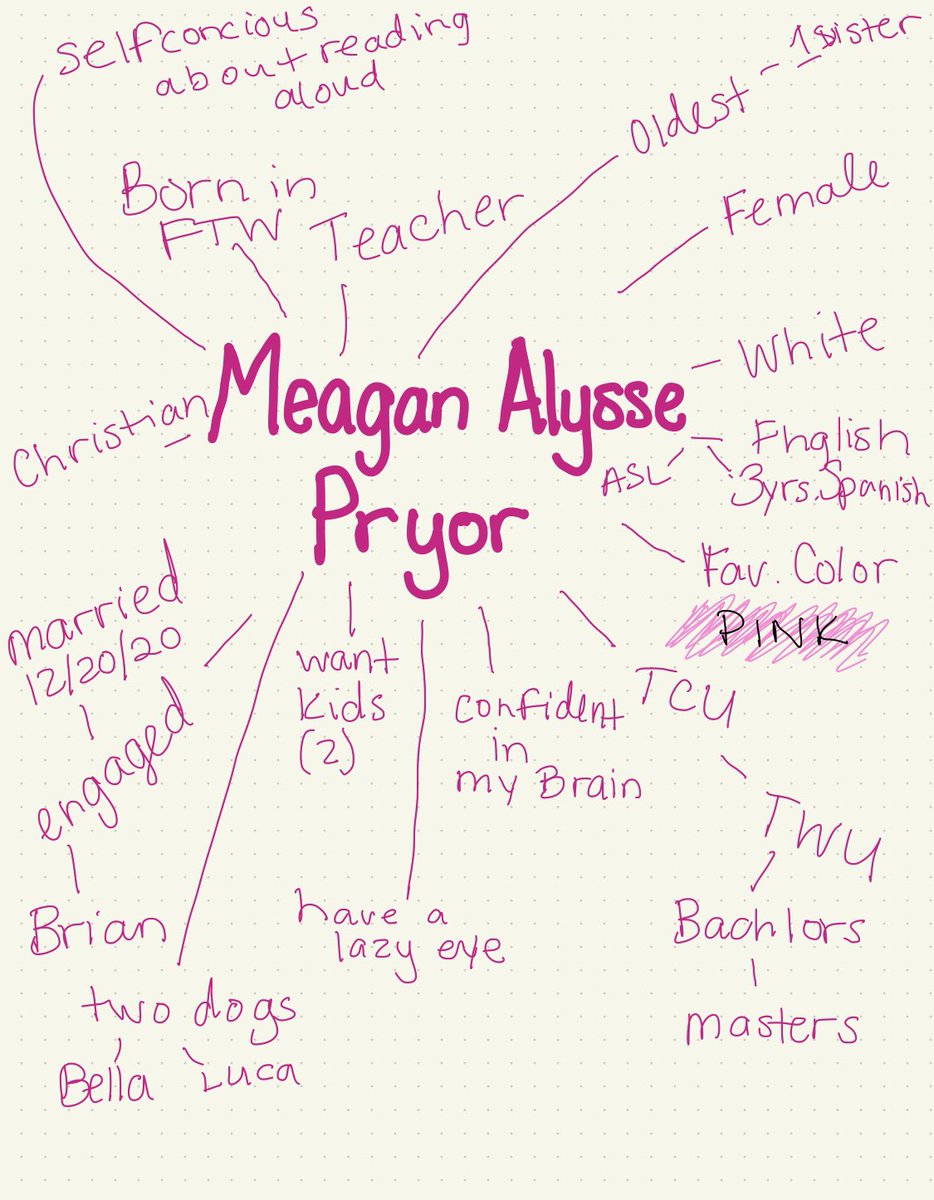 selfconcious
about reading
aloud
Oldest - 1 sister
Born in
FTW
Teacher
Female
White
Christian
Meagan Alysse
Pryor
English
ASL
3yrs. Spanish
Fav. Color
PINK
married
12/20/20
engaged
Brian
want
kids
(2)
confident
in
my Brain
TCU
TWU
Bachlors
masters
have a
lazy eye
two dogs
Bella
Luca